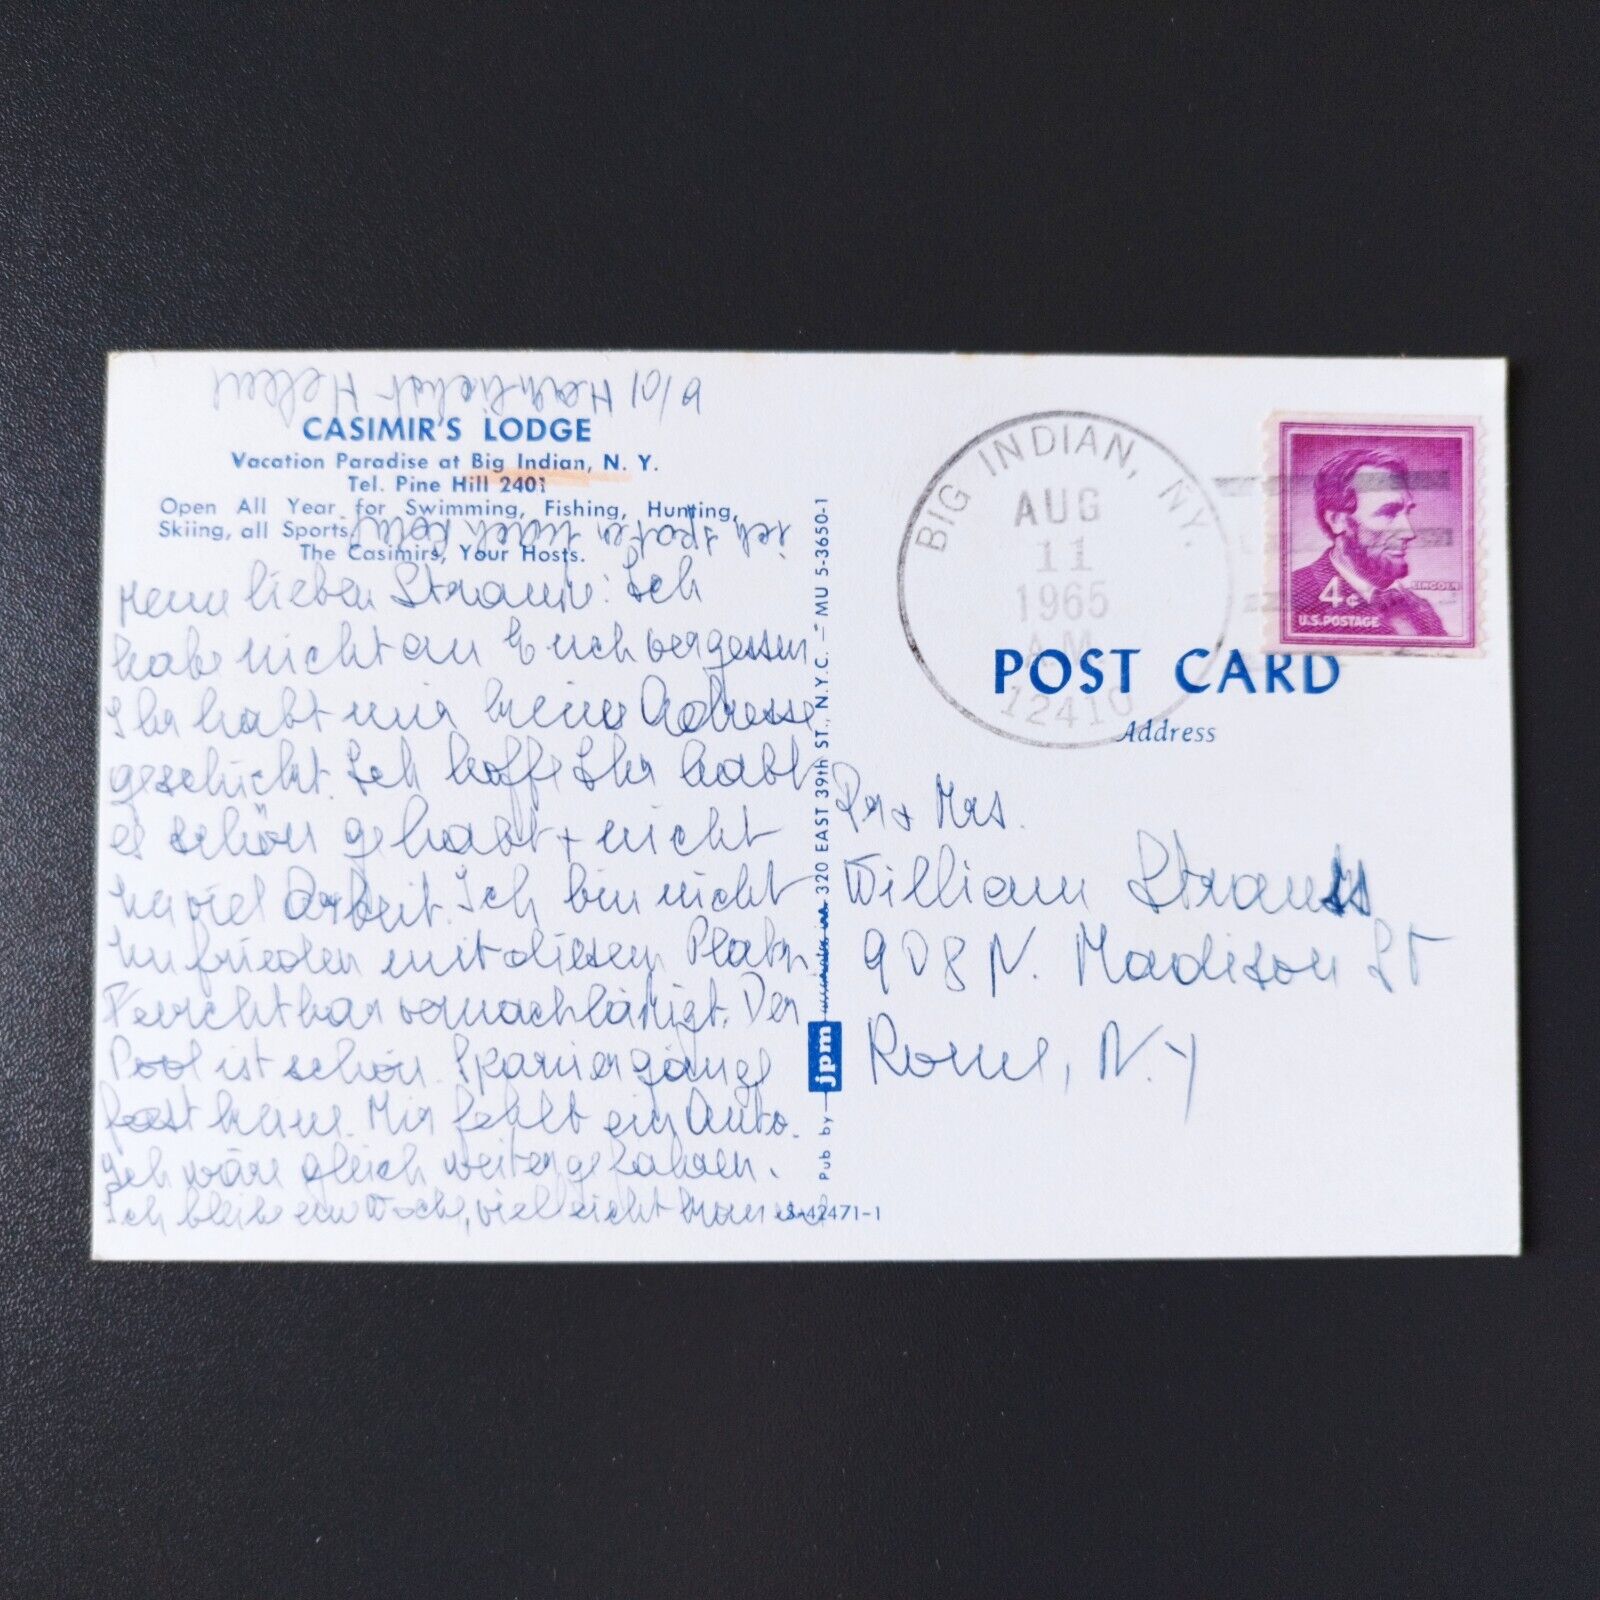 CASIMIR'S LODGE
Vacation Paradise at Big Indian, N. Y.
Tel. Pine Hill 2401
Open All Year for Swimming, Fishing, Hunting,
Skiing, all Sports.
The Casimirs, Your Hosts.
lieben Ich
habe nicht an Euch vergessen
Ihr habt mir keine Adresse
geschickt. Ich hoffe Ihr habt
es schön gehabt + nicht
zu viel Arbeit. Ich bin nicht
zufrieden mit diesem Platz
Furchtbar vernachläßigt. Der
Pool ist schön. Spaziergänge
fast keine. Mir fehlt ein Auto.
Ich wäre gleich weitergefahren.
Ich bleibe eine Woche, vielleicht kann
ich später noch
10/9 Herzlichst Helene
Pub by jpm 320 EAST 39th ST., N.Y.C. — MU 5-3650-1
S-42471-1
BIG INDIAN, N.Y.
AUG
11
1965
A.M.
12410
4¢
LINCOLN
U.S. POSTAGE
POST CARD
Address
+ Mrs.
William Strauss
908 N. Madison St
Rome, N.Y